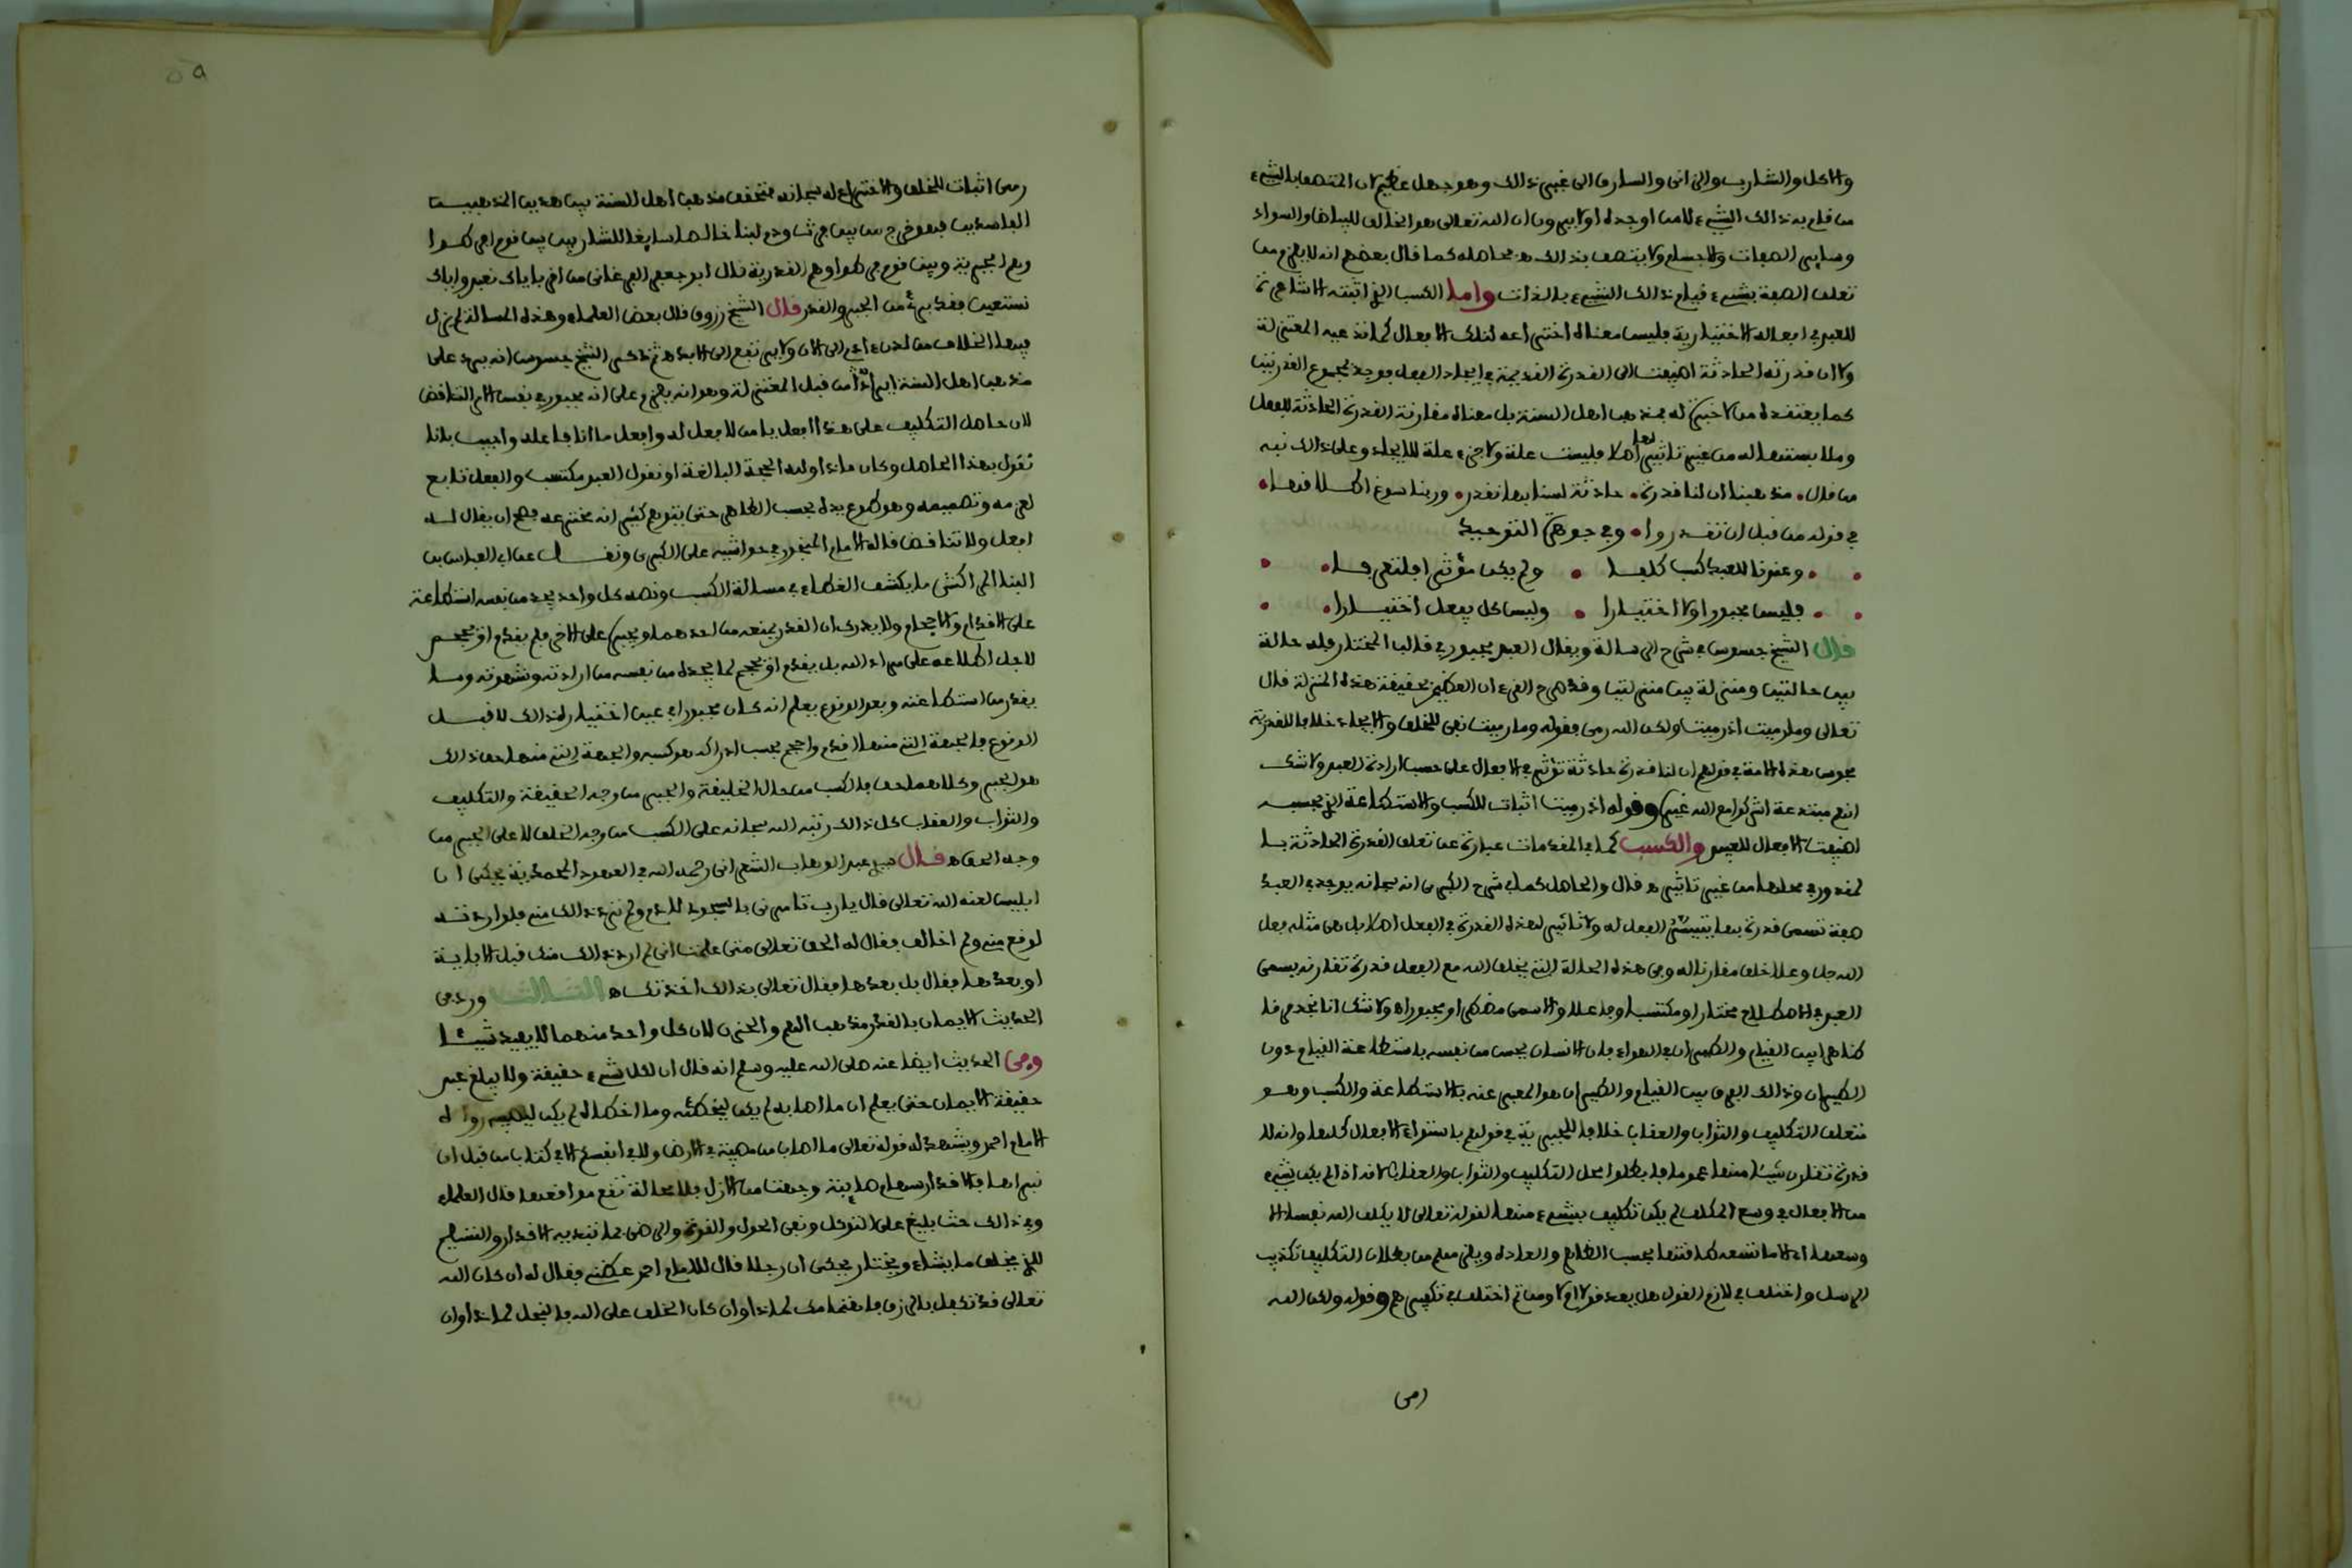 والاكل والشارب والزانى والسارق الى غير ذالك وهو جهل عظيم لان المتصف بالشيء
من قام به ذالك الشيء لا من اوجده اولا يرون ان الله تعالى هو الخالق للبياض والسواد
وساير الصفات والاجسام ولا يتصف بذالك ه محاصله كما قال بعضهم انه لا يلزم من
تعلق الصفة بشيء قيام ذالك الشيء بالذات واما الكسب الذى اثبته الاشاعرة
للعبد في افعاله الاختيارية فليس معناه اختراعه لتلك الافعال كما تدعيه المعتزلة
ولا ان قدرته الحادثة اضيفت الى القدرة القديمة في ايجاد الفعل فوجد بمجموع القدرتين
كما يعتقده من لا خبرة له بمذهب اهل السنة بل معناه مقارنة القدرة الحادثة للفعل
وملابستها له من غير تاثير لها اصلا فليست علة ولا جزء علة للايجاد وعلى ذالك نبه
من قال • مذهبنا ان لنا قدرة • حادثة لسنا بها نقدر • وربنا سوغ اطلاقها •
في قوله من قبل ان تقدروا • وفي جوهرة التوحيد
• وعندنا للعبد كسب كلفا • ولم يكن مؤثرا فلتعرفا •
• فليس مجبورا ولا اختيارا • وليس كل يفعل اختيارا •
قال الشيخ جسوس في شرح الرسالة ويقال العبد مجبور في قالب المختار فله حالة
بين حالتين ومنزلة بين منزلتين وقد صرح القرءان العظيم بحقيقة هذه المنزلة قال
تعالى وما رميت اذ رميت ولكن الله رمى فقوله وما رميت نفى للخلق والايجاد خلافا للقدرية
مجوس هذه الامة في قولهم ان لنا قدرة حادثة تؤثر في الافعال على حسب ارادة العبد ولا شك
انهم مبتدعة اشركوا مع الله غيره وقوله اذ رميت اثبات للكسب والاستطاعة الذى بحسبه
اضيفت الافعال للعبد والكسب كما في المقدمات عبارة عن تعلق القدرة الحادثة با
لمقدور في محلها من غير تاثير ه قال والحاصل كما في شرح الكبرى انه سبحانه يوجد في العبد
صفة تسمى قدرة بها يتيسر الفعل له ولا تاثير لهذه القدرة في الفعل اصلا بل هى مثله فعل
الله جل وعلا خلق مقارنا له وفى هذه الحالة التى يخلق الله مع الفعل قدرة تقارنه يسمى
العبد في الاصطلاح مختارا ومكتسبا وفاعلا والا سمى مضطرا ومجبورا ه ولا شك انا نجد فرقا
ظاهرا بين القيام والطيران في الهواء فان الانسان يحس من نفسه باستطاعة القيام دون
الطيران وذالك الفرق بين القيام والطيران هو المعبر عنه بالاستطاعة والكسب وهو
متعلق التكليف والثواب والعقاب خلافا للجبرية في قولهم باستواء الافعال كلها وانه لا
قدرة تقارن شيئا منها عموما فابطلوا محل التكليف والثواب والعقاب لانه اذا لم يكن شيء
من الافعال في وسع المكلف لم يكن تكليف بشيء منها لقوله تعالى لا يكلف الله نفسا الا
وسعها اى الا ما تسعه طاقتها بحسب الظاهر والعادة ويلزمهم من بطلان التكليف تكذيب
الرسل واختلف في لازم القول هل يعد قولا ام لا ومن ثم اختلف في تكفيرهم وقوله ولكن الله
رمى
رمى اثبات للخلق والاختراع له سبحانه فتحقق مذهب اهل السنة بين هذين المذهبين
الفاسدين فهو خرج من بين فرث ودم لبنا خالصا سايغا للشاربين بين قوم افرطوا
وهم الجبرية وبين قوم فرطوا وهم القدرية قال ابو جعفر الفرغانى من اقر باياك نعبد واياك
نستعين فقد برئ من الجبر والقدر قال الشيخ زروق قال بعض العلماء وهذه المسالة لم يزل
فيها الخلاف من لدن ءادم الى الان ولا يرتفع الى الابد ه ثم ذكر الشيخ جسوس انه يرد على
مذهب اهل السنة ايرادا من قبل المعتزلة وهو انه يلزم على انه مجبور في نفس الامر التناقض
لان حاصل التكليف على هذا افعل يا من لا فعل له وافعل ما انا فاعله واجيب بانا
نقول بهذا الحاصل وكان ماذا وله الحجة البالغة او نقول العبد مكتسب والفعل تابع
لعزمه وتصميمه وهو طوع يده بحسب الظاهر حتى يتوهم كثير انه مخترعه فصح ان يقال له
افعل ولا تناقض قاله الامام المنجور في حواشيه على الكبرى ونقل عن ابى العباس بن
البنا المراكشى ما يكشف الغطاء في مسالة الكسب ونصه كل واحد يجد من نفسه استطاعة
على الاقدام والاحجام ولا يدرى ان القدر يمنعه من احدهما ويجبره على الاخر فلم يقدم او يحجم
لاجل اطلاعه على مراد الله بل يقدم او يحجم لما يجده من نفسه من ارادته وشهوته وما
يقدر من استطاعته وبعد الوقوع يعلم انه كان مجبورا في عين اختياره لذالك لا قبل
الوقوع فالجهة التى منها اقدم واحجم بحسب ادراكه هو كسبه والجهة التى منها حق ذالك
هو الجبر وكلاهما حق فالكسب من حال الخليقة والجبر من وجه الحقيقة والتكليف
والثواب والعقاب كل ذالك رتبه الله سبحانه على الكسب من وجه الخلق لا على الجبر من
وجه الحق ه قال سيدى عبد الوهاب الشعرانى رحمه الله في العهود المحمدية يحكى ان
ابليس لعنه الله تعالى قال يارب تامرنى بالسجود لادم ولم ترد ذالك منى فلو اردته
لوقع منى ولم اخالف فقال له الحق تعالى متى علمت انى لم ارد ذالك منك قبل الاباية
او بعدها فقال بل بعدها فقال تعالى بذالك اخذتك ه الثالث ورد فى
الحديث الايمان بالقدر مذهب الهم والحزن لان كل واحد منهما لا يفيد شيئا
وفى الحديث ايضا عنه صلى الله عليه وسلم انه قال ان لكل شيء حقيقة ولا يبلغ عبد
حقيقة الايمان حتى يعلم ان ما اصابه لم يكن ليخطئه وما اخطاه لم يكن ليصيبه رواه
الامام احمد ويشهد له قوله تعالى ما اصاب من مصيبة في الارض ولا في انفسكم الا في كتاب من قبل ان
نبراها فالاقدار سهام صايبة وجهت من الازل فلا محالة تقع مواقعها قال العلماء
وفى ذالك حث بليغ على التوكل ونفى الحول والقوة والرضى بما تبديه الاقدار والتسليم
للذى يخلق ما يشاء ويختار يحكى ان رجلا قال للامام احمد عظنى فقال له ان كان الله
تعالى قد تكفل بالرزق فاهتمامك لماذا وان كان الخلف على الله فالبخل لماذا وان